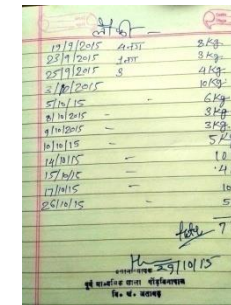 लौकी -
19/9/2015 4 नग 8 kg
23/9/2015 1 नग 3 kg
25/9/2015 3 4 kg
3/10/2015 10 kg
5/10/15 - 6 kg
8/10/2015 - 3 kg
9/10/2015 - 3 kg
10/10/15 - 5 k
14/10/15 - 10
15/10/15 - .4
17/10/15 10
26/10/15 - 5
7
29/10/15
पूर्व माध्यमिक शाला
वि० खं०